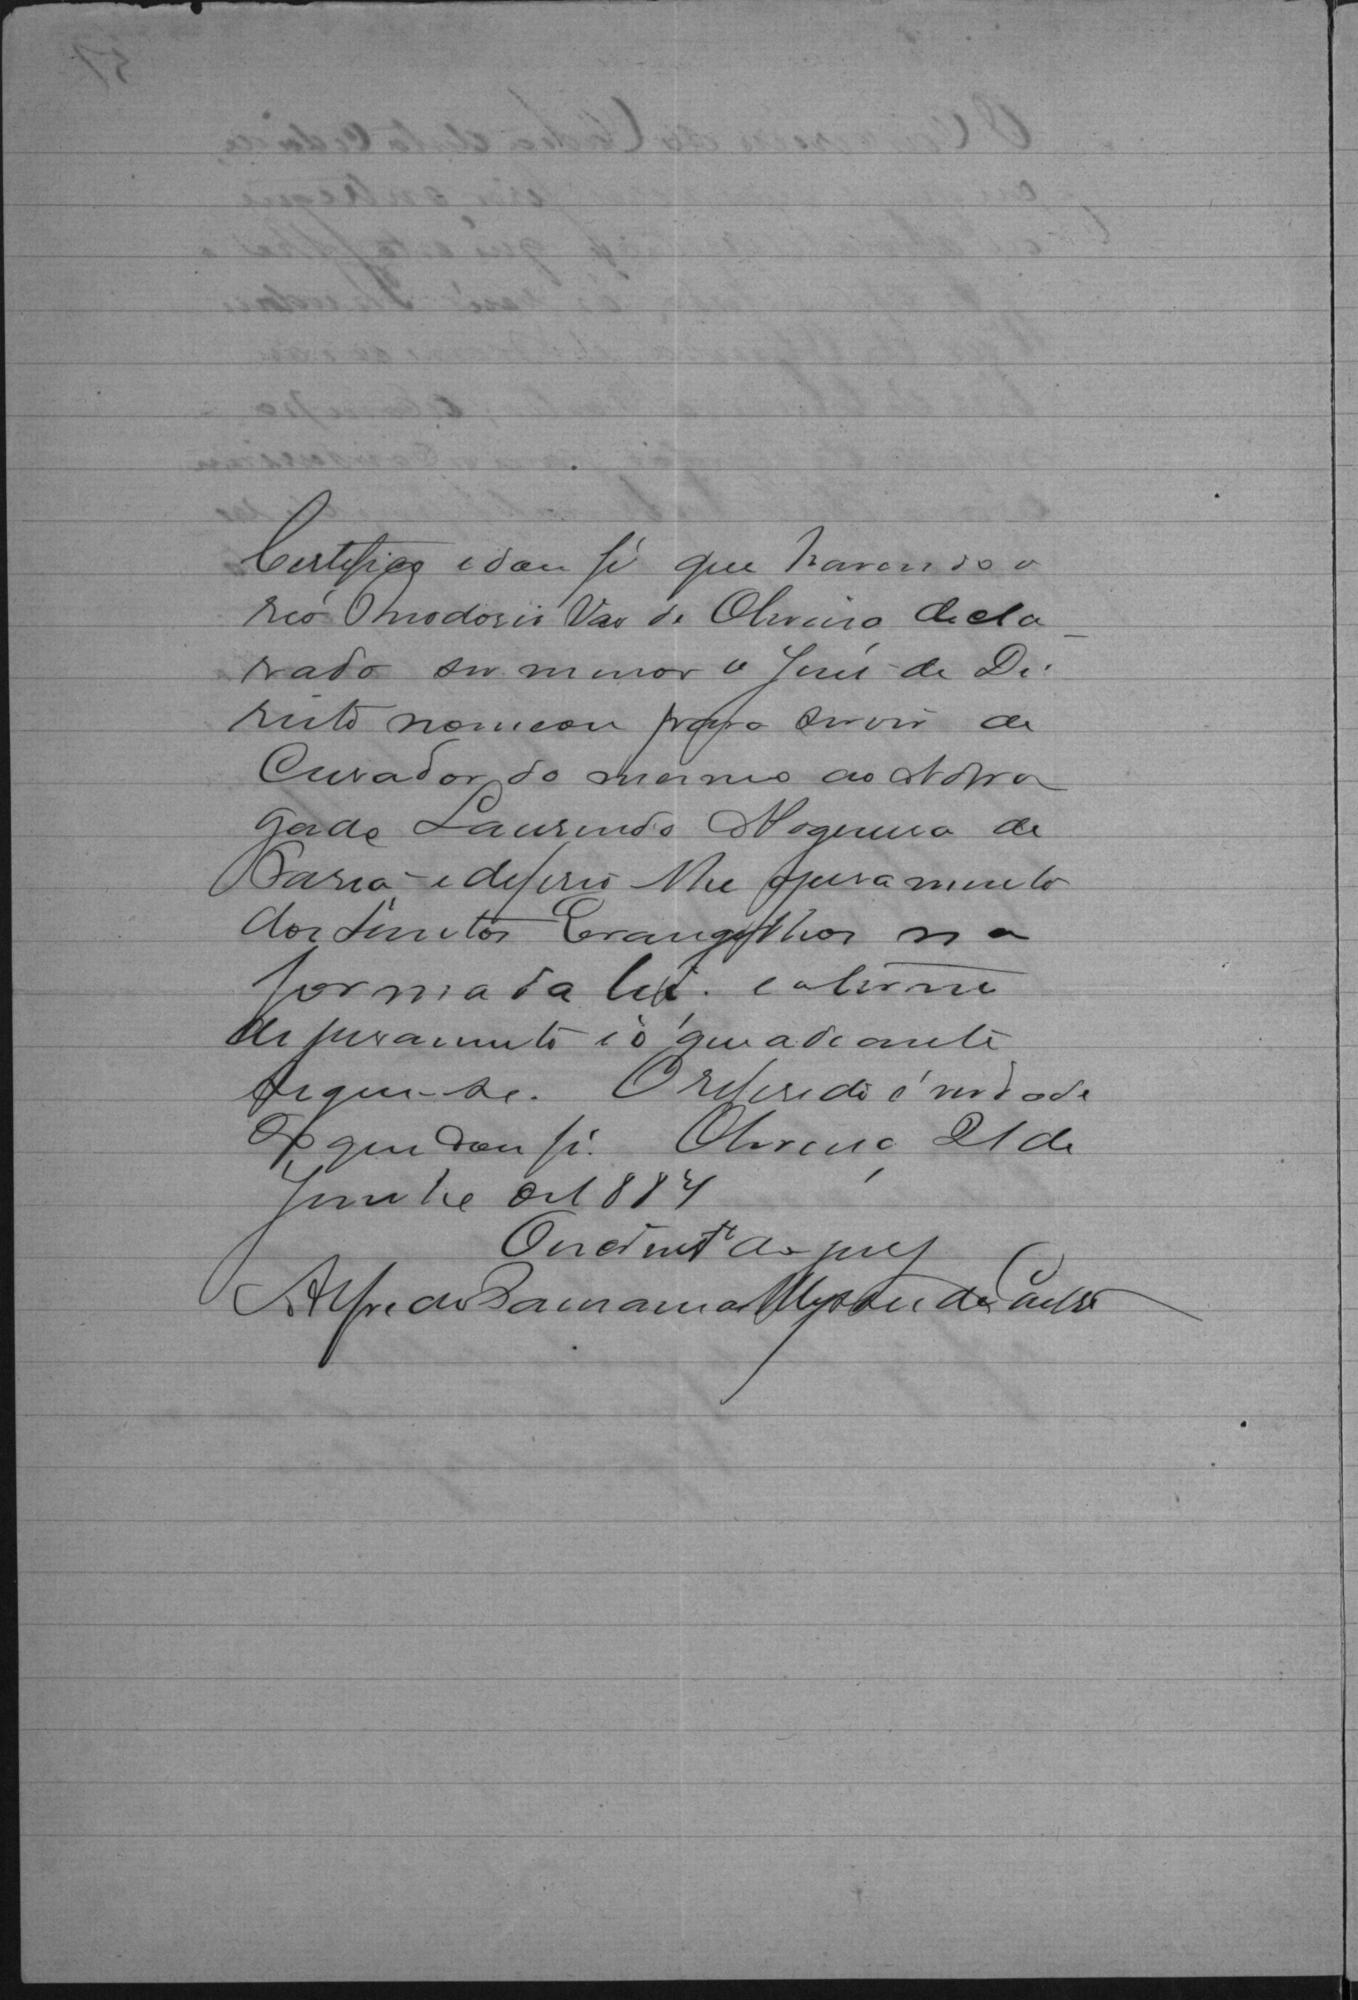 Certifico e dou fé que havendo o
réo Theodosio Vaz de Oliveira decla-
rado ser menor o Juiz de Di-
reito nomeou para servir de
Curador do mesmo ao Advo
gado Laurindo Nogueira de
Faria e deferio lhe juramento
dos Sinctos Evangelhos na
forma da lei. e o termo
de juramento é o que adeante
segue-se. O referido é verdade
do que dou fé. Oliveira 21 de
Junho de 1884
O Escrivão do jury
Alfredo Paranama de Castro